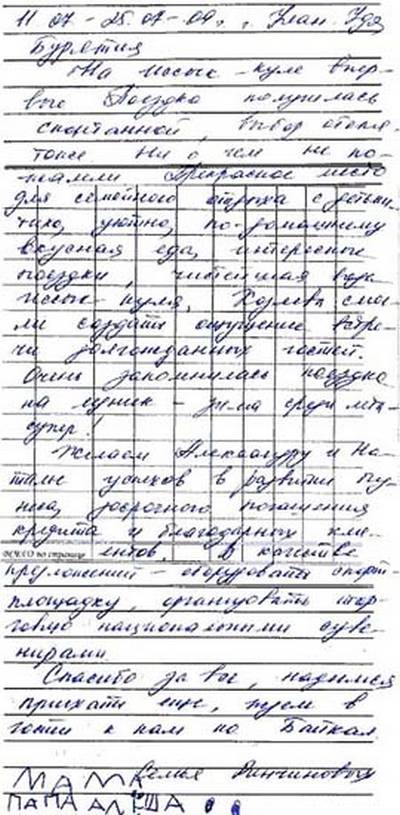 11.07 - 25.07-09г., г. Улан-Удэ
Бурятия
На Иссык-куле впер-
вые. Поездка получилась
спонтанной, выбор отеля
тоже. Ни о чем не по-
жалели. Прекрасное место
для семейного отдыха с детьми.
тихо, уютно, по-домашнему
вкусная еда, интересные
поездки, чистейшая вода
Иссык-Куля. Хозяева смог-
ли создать ощущение встре-
чи долгожданных гостей.
Очень запомнилась поездка
на сырт - зима среди лета -
супер!
Желаем Александру и На-
талье успехов в развитии биз-
неса, досрочного погашения
кредита и благодарных кли-
ВСЕГО по странице
ентов. В качестве
предложений - оборудовать спорт-
площадку, организовать тор-
говлю национальными суве-
нирами.
Спасибо за все, надеемся
приехать еще, ждем в
гости к нам на Байкал
Семья Ринчиновых
МАМА
ПАПА АЛЁША